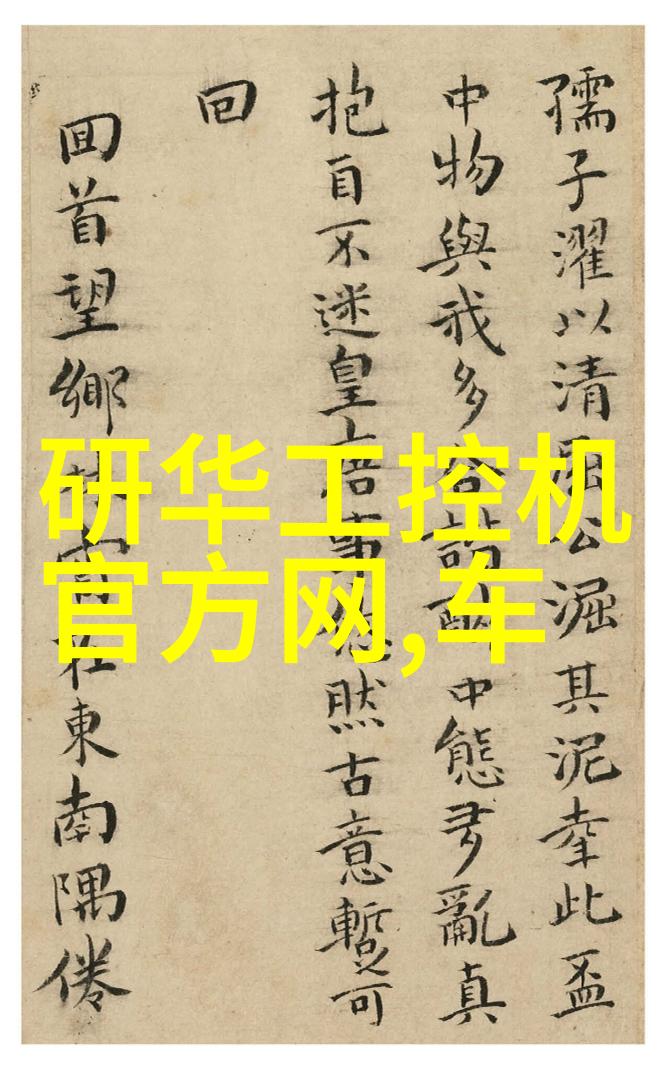 孺子濯以清屈公淈其泥幸此盃
中物與我多諧中態多亂真
抱自不迷皇事然古意暫可
回
回首望鄉在東南隅倦
研华工控机
官方网,车